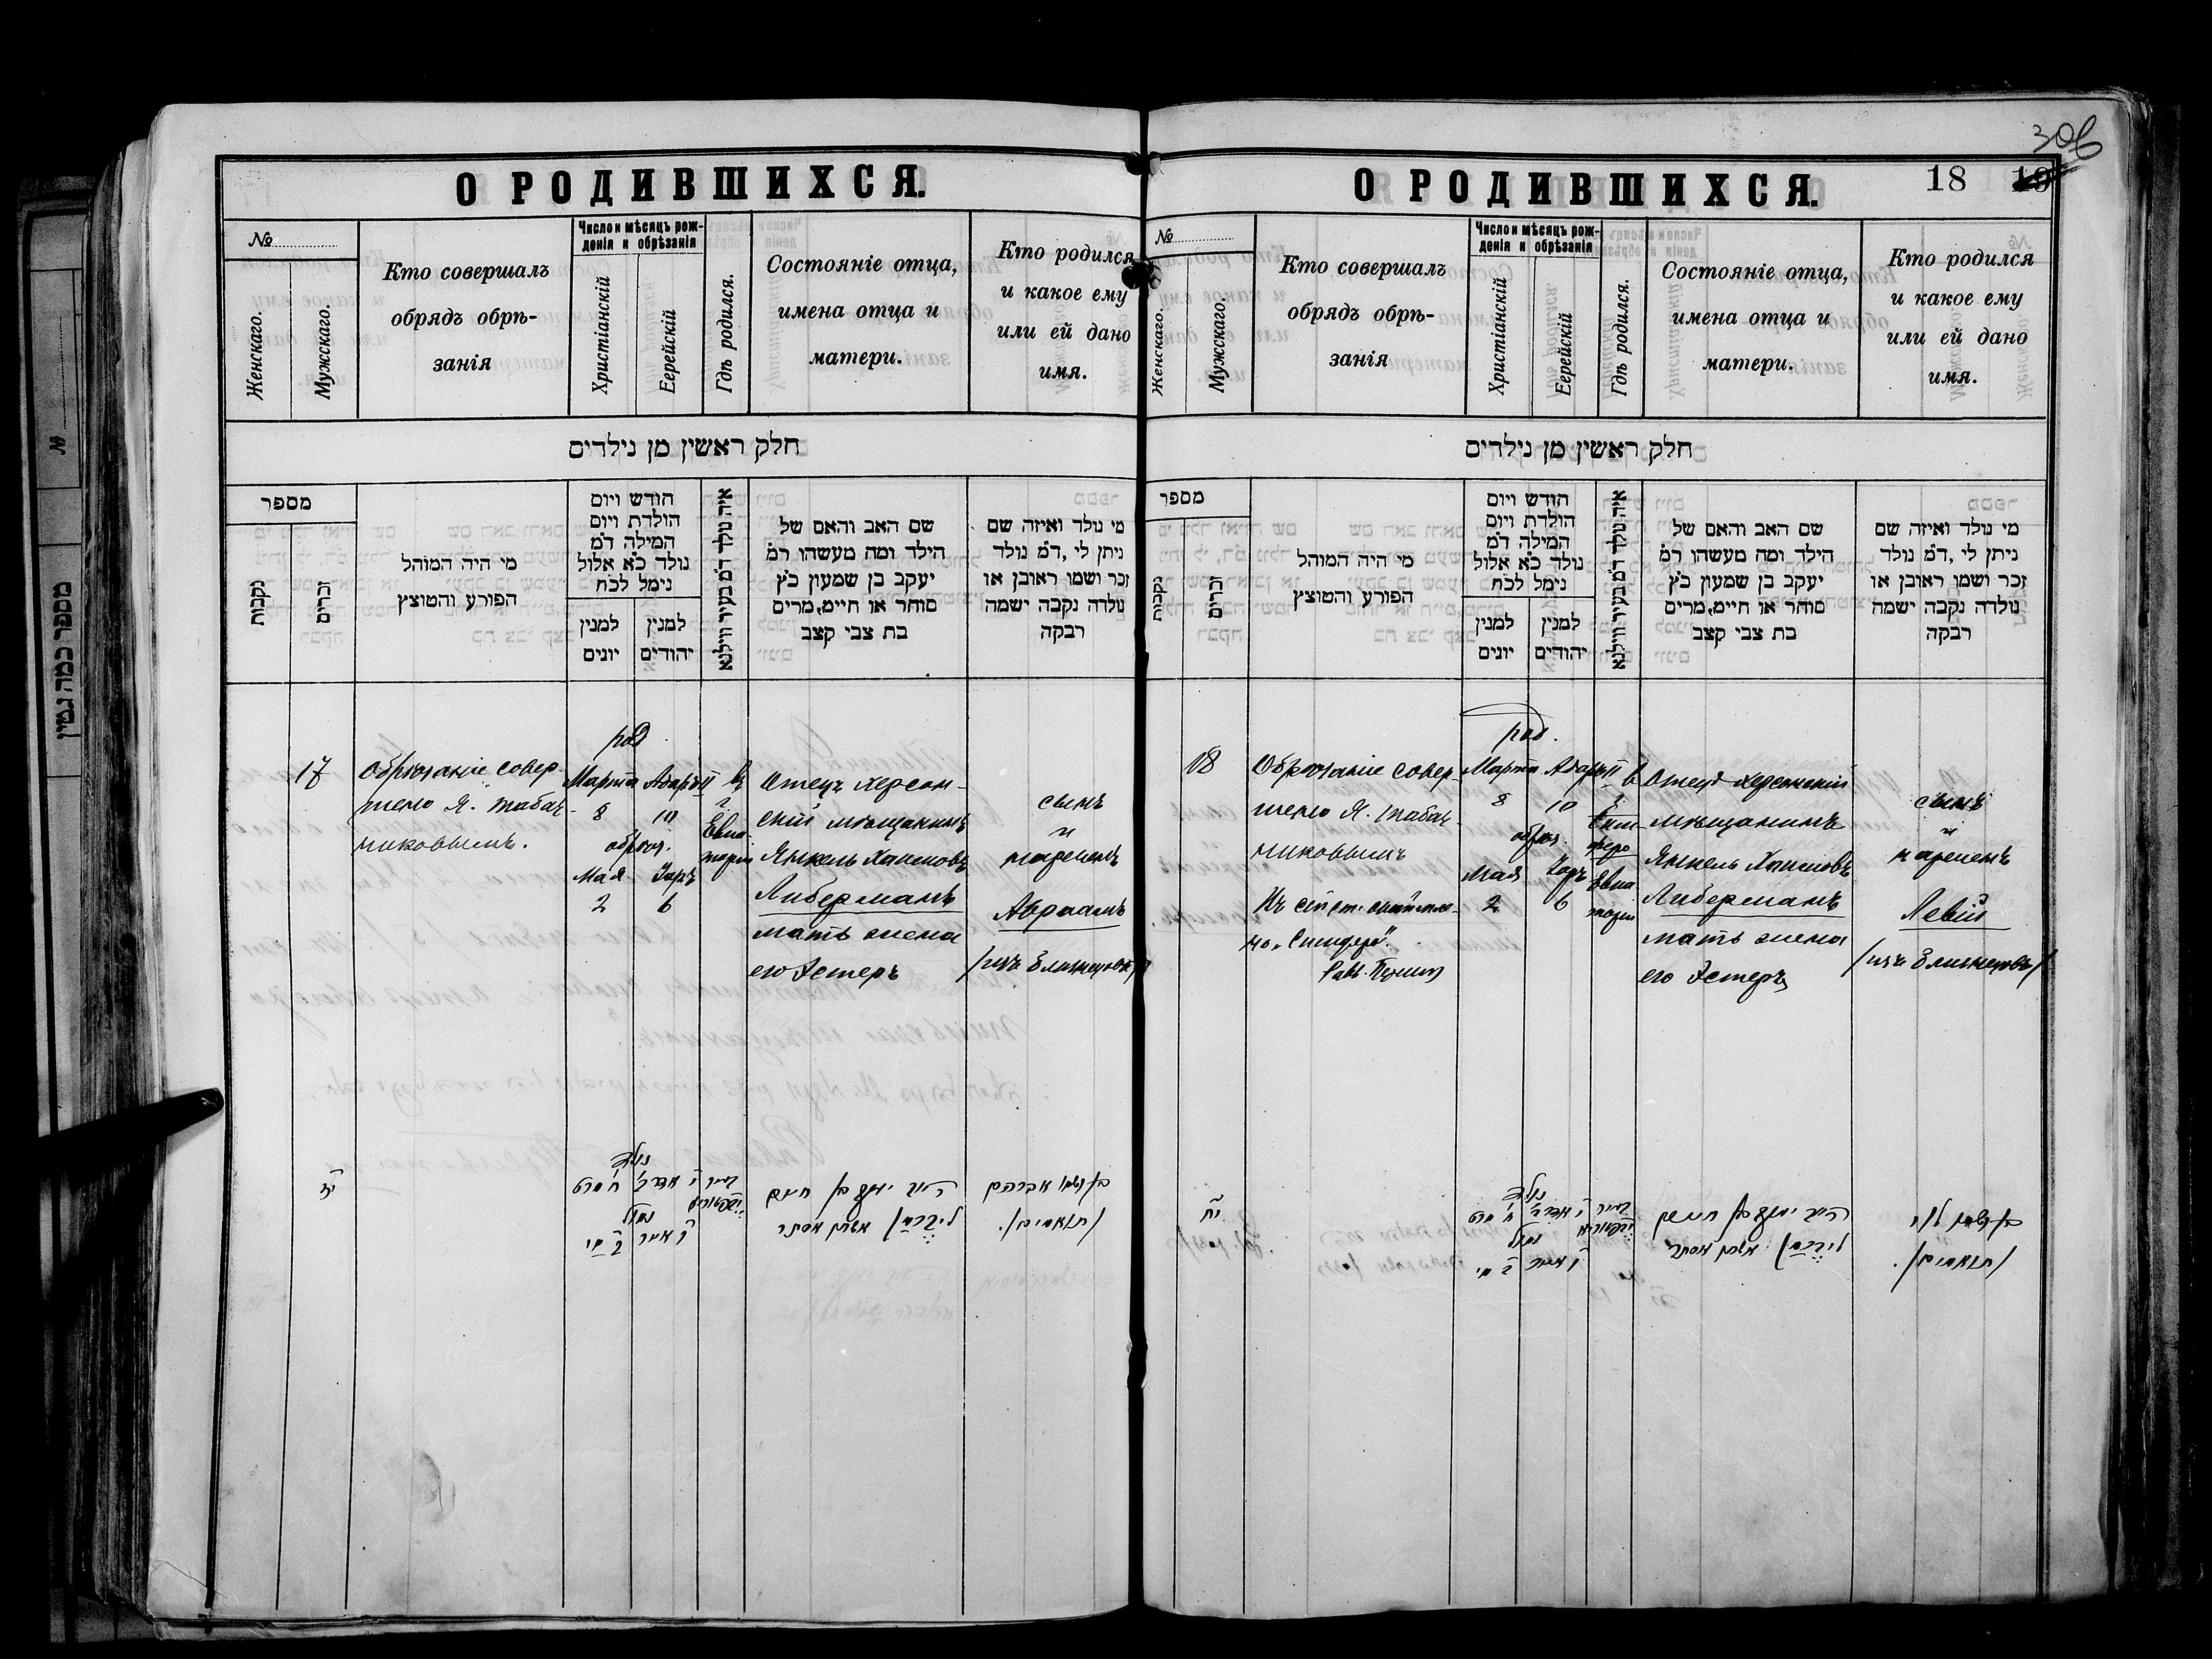 306
О РОДИВШИХСЯ.
№
Женскаго.
Мужскаго.
Кто совершалъ
обрядъ обрѣ-
занія
Число и мѣсяцъ рож-
денія и обрѣзанія
Христіанскій
Еерейскій
Гдѣ родился.
Состояніе отца,
имена отца и
матери.
Кто родился
и какое ему
или ей дано
имя.
חלק ראשין מן נילדים
מספר
נקבות
זכרים
מי היה המוהל
הפורע והטוצץ
הודש ויום
הולדת ויום
המילה ד״מ
נולד כ״א אלול
נימל לכ״ח
למנין
יונים
למנין
יהודים
איה נולד ד״מ בעיר ווילנא
שם האב והאם של
הילד ומה מעשהו ד״מ
יעקב בן שמעון כ״ץ
סוחר או חיים, מרים
בת צבי קצב
מי נולד ואיזה שם
ניתן לי, ד״מ נולד
זכר ושמו ראובן או
נולדה נקבה ישמה
רבקה
17
Обрѣзаніе совер-
шено Я. Табач-
никовымъ.
род
Марта Адаръ II
8 10
обрѣз.
Мая Іаръ
2 6
Въ
г.
Евпа-
торіи
Отецъ херсон-
скій мѣщанинъ
Янкель Хаимовъ
Либерманъ
мать жена
его Эстеръ
сынъ
и
нареченъ
Авраамъ
/изъ близнецовъ/
נולד
י אדר ב ח מרט
נמול
ו אייר ב מי
בעיר
ר׳ יעקב בן חיים
ליברמן אשתו אסתר
בן ושמו אברהם
/תאומים/.
О РОДИВШИХСЯ.
18 19
№
Женскаго.
Мужскаго.
Кто совершалъ
обрядъ обрѣ-
занія
Число и мѣсяцъ рож-
денія и обрѣзанія
Христіанскій
Еерейскій
Гдѣ родился.
Состояніе отца,
имена отца и
матери.
Кто родился
и какое ему
или ей дано
имя.
חלק ראשין מן נילדים
מספר
נקבות
זכרים
מי היה המוהל
הפורע והטוצץ
הודש ויום
הולדת ויום
המילה ד״מ
נולד כ״א אלול
נימל לכ״ח
למנין
יונים
למנין
יהודים
איה נולד ד״מ בעיר ווילנא
שם האב והאם של
הילד ומה מעשהו ד״מ
יעקב בן שמעון כ״ץ
סוחר או חיים, מרים
בת צבי קצב
מי נולד ואיזה שם
ניתן לי, ד״מ נולד
זכר ושמו ראובן או
נולדה נקבה ישמה
רבקה
18
Обрѣзаніе совер-
шено Я. Табач-
никовымъ
род.
Марта Адаръ II
8 10
обрѣз.
Мая Іаръ
2 6
В
г.
Евпа
торіи
Отецъ херсонскій
мѣщанинъ
Янкель Хаимовъ
Либерманъ
мать жена
его Эстеръ
сынъ
и
нареченъ
Левій
/изъ близнецовъ/
יח
נולד
י אדר ב ח מרט
נמול
ו אייר ב מי
בעיר
ר׳ יעקב בן חיים
ליברמן אשתו אסתר
בן ושמו לוי
/תאומים/.